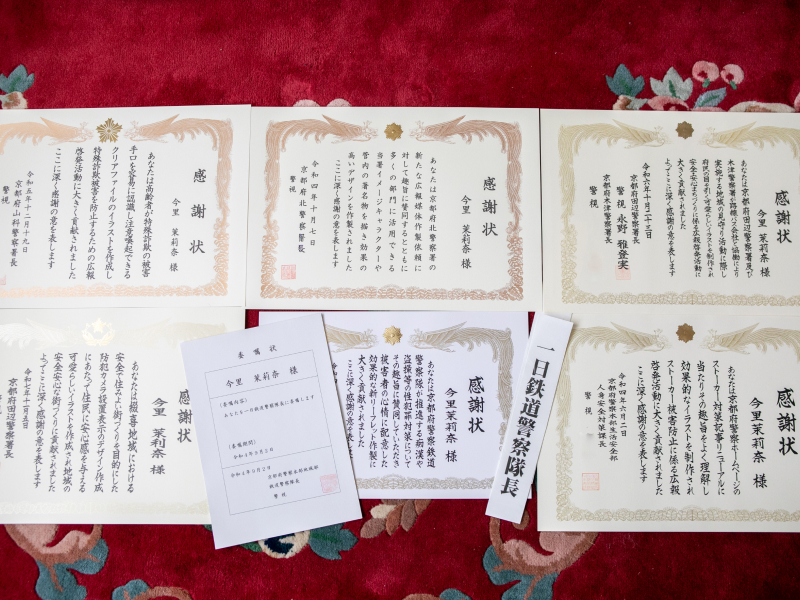 感謝状
今里 茉莉奈 様
あなたは高齢者が特殊詐欺の被害
手口を容易に認識し注意喚起できる
クリアファイルのイラストを作成し
特殊詐欺被害を防止するための広報
啓発活動に大きく貢献されました
ここに深く感謝の意を表します
令和五年十二月十九日
京都府山科警察署長
警視
感謝状
今里 茉莉奈 様
あなたは京都府北警察署の
新たな広報媒体作製依頼に
対して趣旨に賛同するとともに
多くの部門に活用できる
当署イメージキャラクターや
管内の著名物を描き効果の
高いデザインを作製されました
ここに深く感謝の意を表します
令和四年十月七日
京都府北警察署長
警視
感謝状
今里 茉莉奈 様
あなたは京都府田辺警察署及び
木津警察署が路線バス会社と協働により
実施する地域の見守り活動に際し
府民の目を引く可愛らしいイラストを制作され
安全安心まちづくりに係る広報啓発活動に
大きく貢献されました
よってここに深く感謝の意を表します
令和六年十月二十三日
京都府田辺警察署長
警視 永野 雅登実
京都府木津警察署長
警視
感謝状
今里 茉莉奈 様
あなたは綴喜地域における
安全で住みよい街づくりを目的にした
防犯カメラ設置表示のデザイン作成
にあたって住民に安心感を与える
可愛らしいイラストを作成され地域の
安全安心な街づくりに貢献されました
よってここに深く感謝の意を表します
令和七年十月五日
京都府田辺警察署長
委嘱状
今里 茉莉奈 様
(委嘱内容)
あなたを一日鉄道警察隊長に委嘱します
(委嘱期間)
令和4年3月2日
令和4年3月2日
京都府警察本部地域部
鉄道警察隊長
警視
感謝状
今里 茉莉奈 様
あなたは京都府警察鉄道
警察隊が推進する痴漢や
盗撮等の性犯罪対策について
その趣旨に賛同していただき
被害者の心情に配意した
効果的な新リーフレット作製に
大きく貢献されました
ここに深く感謝の意を表します
一日鉄道警察隊長
感謝状
今里 茉莉奈 様
あなたは京都府警察ホームページの
ストーカー対策記事リニューアルに
当たりその趣旨をよく理解し
効果的なイラストを制作され
ストーカー被害防止に係る広報
啓発活動に大きく貢献されました
ここに深く感謝の意を表します
令和四年六月二日
京都府警察本部生活安全部
人身安全対策課長
警視